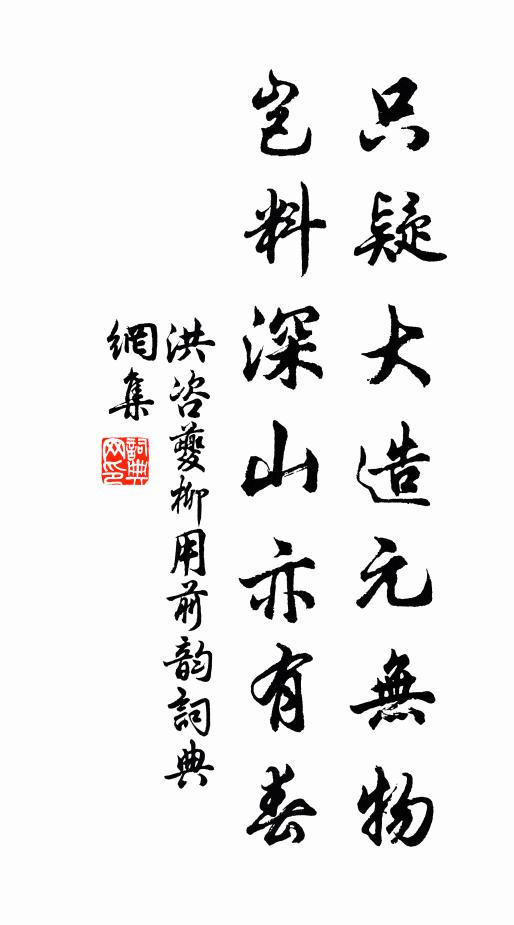 只疑大造元無物
豈料深山亦有春
洪咨夔柳用前韵詞典
網集
詞典網印